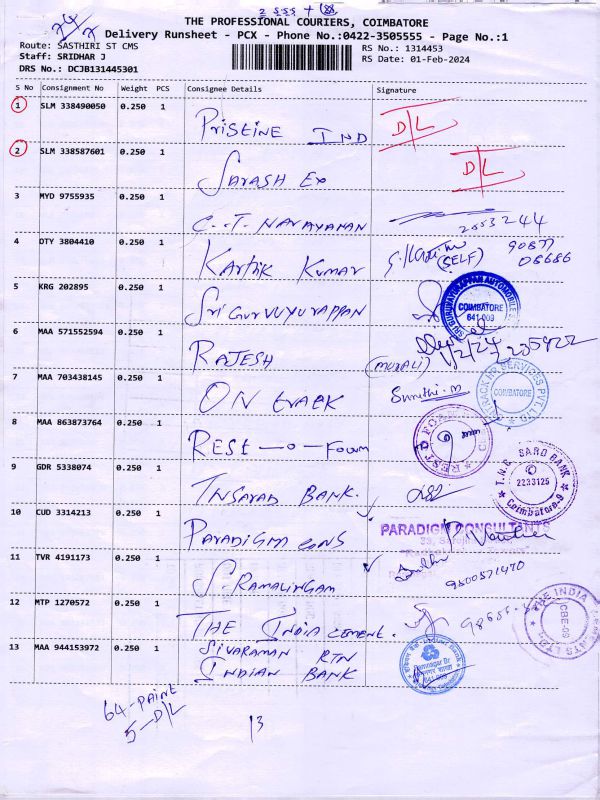 2555 + 188
THE PROFESSIONAL COURIERS, COIMBATORE
Delivery Runsheet - PCX - Phone No.:0422-3505555 - Page No.:1
Route: SASTHIRI ST CMS
RS No.: 1314453
Staff: SRIDHAR J
RS Date: 01-Feb-2024
DRS No.: DCJB131445301
S No Consignment No Weight PCS Consignee Details Signature
1 SLM 338490050 0.250 1 PRISTINE IND D/L
2 SLM 338587601 0.250 1 SARASH EX D/L
3 MYD 9755935 0.250 1 C.T. NARAYANAN 2553244
4 OTY 3804410 0.250 1 KARTHIK KUMAR (SELF) 90877
08686
5 KRG 202895 0.250 1 SRI GURVUYURAPPAN
SRI GURUVAYURAPPAN AUTOMOBILE
COIMBATORE
641 009
6 MAA 571552594 0.250 1 RAJESH (MURALI) 1/2/24
7 MAA 703438145 0.250 1 ON TRACK Sumithi.m
TRACK HR SERVICES PVT LTD
COIMBATORE
8 MAA 863873764 0.250 1 REST-O-FOAM
9 GDR 5338074 0.250 1 TNSARAD BANK.
T.N.S. SARD BANK
2233125
Coimbatore-9
10 CUD 3314213 0.250 1 PARADIGM CONS
PARADIGM CONSULTANTS
11 TVR 4191173 0.250 1 S RAMALINGAM 9500571470
12 MTP 1270572 0.250 1 THE INDIA CEMENT.
THE INDIA
CBE-09
13 MAA 944153972 0.250 1 SIVARAMAN RTN
INDIAN BANK
Ramnagar Br
641 009
64-PAINE
5-D/L
13